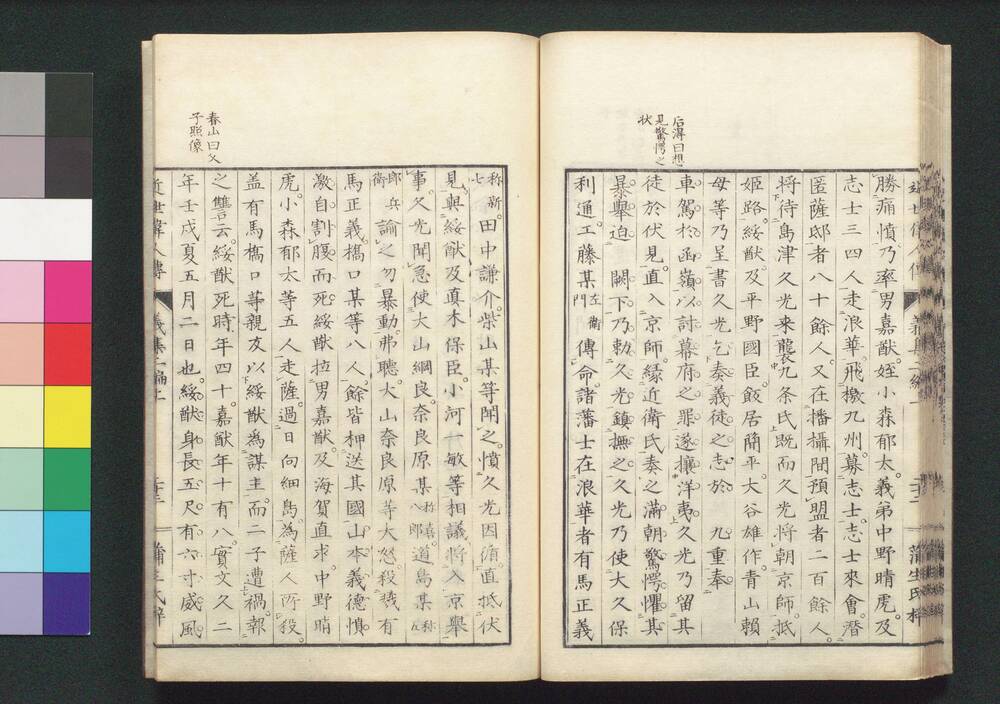 后淂曰想
見驚愕之
状
勝痛憤乃率男嘉猷姪小森郁太義弟中野晴虎及
志士三四人走浪華飛檄九州募志士志士來會潛
匿薩邸者八十餘人又在播攝間預盟者二百餘人
将待島津久光来襲九条氏既而久光将朝京師抵
姫路綏猷及平野國臣飯居簡平大谷雄作青山賴
母等乃呈書久光乞奏義徒之志於 九重奉
車駕於函嶺以討幕府之罪遂攘洋夷久光乃留其
徒於伏見直入京師緣近衛氏奏之滿朝驚愕懼其
暴擧迫 闕下乃勅久光鎮撫之久光乃使大久保
利通工藤某左衛門傳命諸藩士在浪華者有馬正義
春山曰父
子照像
称新七田中謙介柴山某等聞之憤久光因循直抵伏
見與綏猷及真木保臣小河一敏等相議将入京擧
事久光聞急使大山綱良奈良原某称喜八郎道島某称五
郎兵衛諭之勿暴動弗聽大山奈良原等大怒殺戮有
馬正義橋口某等八人餘皆押送其國山本義德憤
激自割腹而死綏猷拉男嘉猷及海賀直求中野晴
虎小森郁太等五人走薩過日向細島為薩人所殺
盖有馬橋口等親友以綏猷為謀主而二子遭禍報
之讐云綏猷死時年四十嘉猷年十有八實文久二
年壬戌夏五月二日也綏猷身長五尺有六寸威風
近世偉人傳 義集二編上 蒲生氏梓